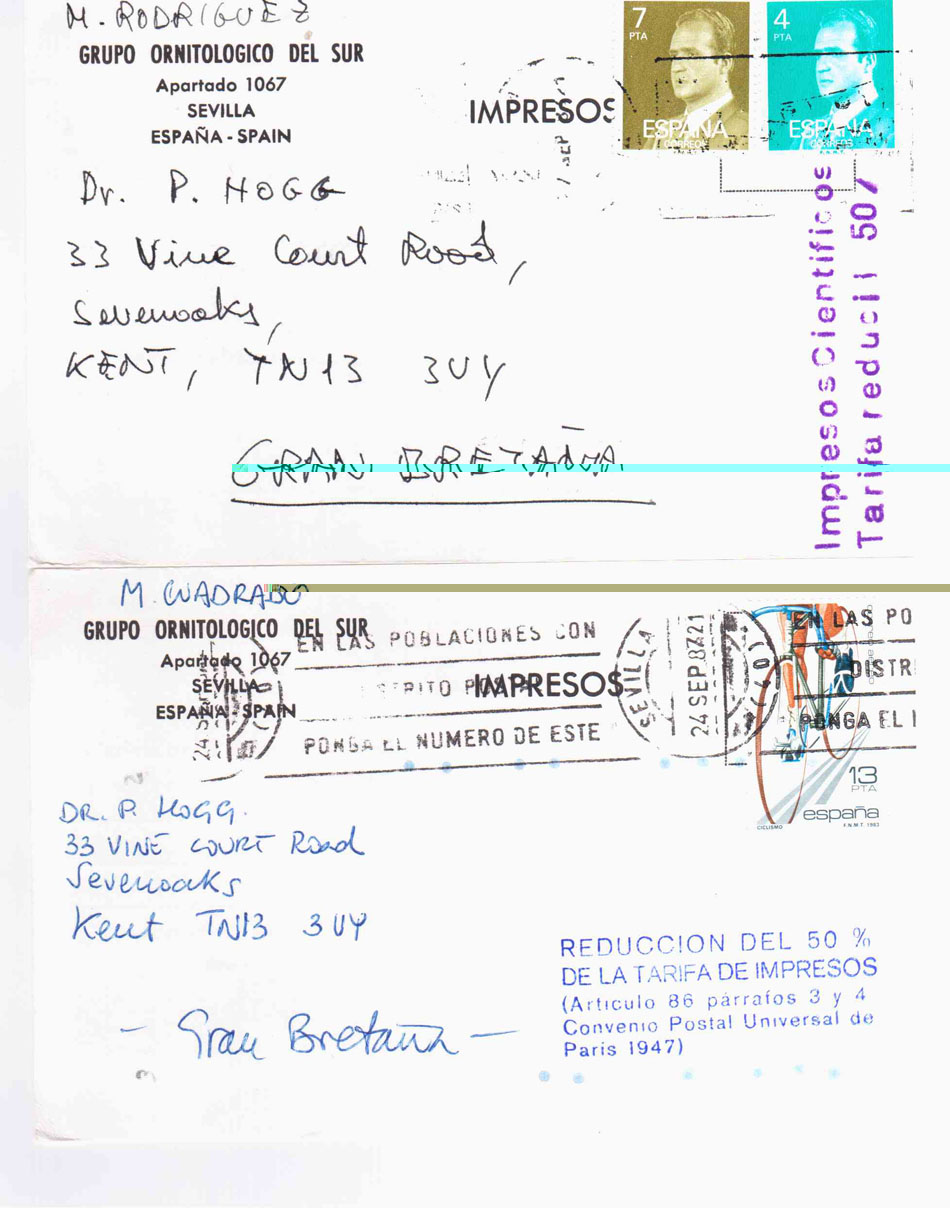 M. RODRIGUEZ
GRUPO ORNITOLOGICO DEL SUR
Apartado 1067
SEVILLA
ESPAÑA - SPAIN
IMPRESOS
7
PTA
ESPAÑA
CORREOS
4
PTA
ESPAÑA
CORREOS
Dr. P. HOGG
33 Vine Court Road,
Sevenoaks,
KENT, TN13 3UY
GRAN BRETAÑA
Impresos Cientificos
Tarifa
M. CUADRADO
GRUPO ORNITOLOGICO DEL SUR
Apartado 1067
SEVILLA
ESPAÑA - SPAIN
IMPRESOS
EN LAS POBLACIONES CON
PONGA EL NUMERO DE ESTE
SEVILLA
24 SEP
21
EN LAS PO
DISTRI
PONGA EL
13
PTA
españa
CICLISMO
F.N.M.T. 1983
DR. P. HOGG.
33 VINE COURT Road
Sevenoaks
Kent TN13 3UY
- Gran Bretaña -
REDUCCION DEL 50 %
DE LA TARIFA DE IMPRESOS
(Articulo 86 párrafos 3 y 4
Convenio Postal Universal de
Paris 1947)